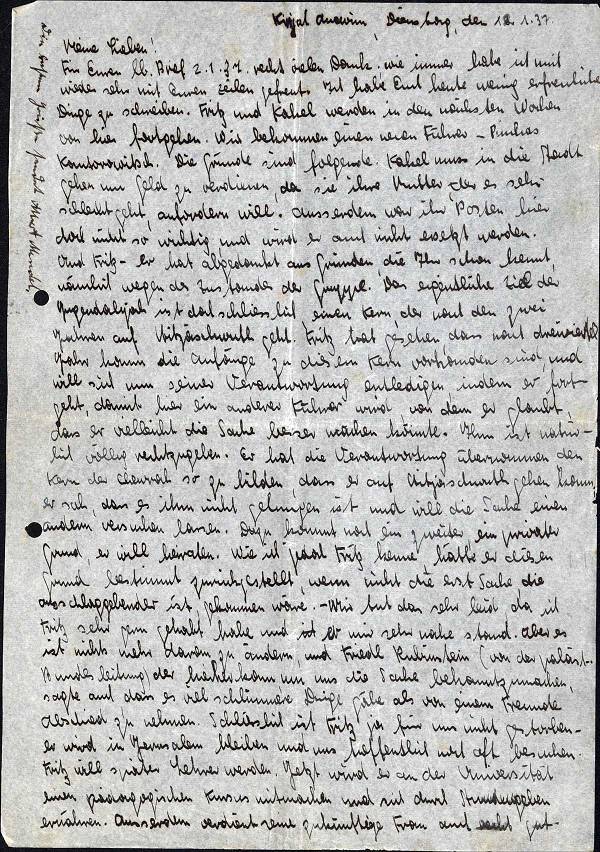 Kirjat Anavim, Dienstag, den 12.1.37.
Meine Lieben!
Für Euren lb. Brief 2.1.37. recht vielen Dank. wie immer habe ich mich
wieder sehr mit Euren Zeilen gefreut. Ich habe Euch heute wenig erfreuliche
Dinge zu schreiben. Fritz und Rahel werden in den nächsten Wochen
von hier fortgehen. Wir bekommen einen neuen Führer – Pinchas
Kantorowitsch. Die Gründe sind folgende. Rahel muss in die Stadt
gehen um Geld zu verdienen, da sie ihre Mutter, der es sehr
schlecht geht, anfordern will. Ausserdem war ihr Posten hier
doch nicht so wichtig und wird er auch nicht ersetzt werden.
Und Fritz – er hat abgedankt aus Gründen die Ihr schon kennt,
nämlich wegen des Zustandes der Gruppe. Das eigentliche Ziel der
Jugendalijah ist doch schliesslich einen Kern, der nach den zwei
Jahren auf Hitjaschwuth geht. Fritz hat gesehen dass nach dreiviertel
Jahr kaum die Anfänge zu diesem Kern vorhanden sind, und
will sich nun seiner Verantwortung entledigen indem er fort
geht, damit hier ein anderer Führer wird, von dem er glaubt,
dass er vielleicht die Sache besser machen könnte. Ihm ist natür-
lich völlig rechtzugeben. Er hat die Verantwortung übernommen den
Kern der Chewrah so zu bilden, dass er auf Hitjaschwuth gehen kann,
er sah, dass es ihm nicht gelungen ist und will die Sache einen
andern versuchen lassen. Dazu kommt noch ein zweiter, ein privater
Grund, er will heiraten. Wie ich Fritz kenne hätte er diesen
Grund bestimmt zurückgestellt, wenn nicht die erste Sache die
ausschlaggebender ist gekommen wäre. – Mir tut das sehr leid da ich
Fritz sehr gern gehabt habe und er mir sehr nahe stand. Aber es
ist nichts mehr daran zu ändern, und Friedl Rubinstein (von der paläst.
Bundesleitung) der hierher kam um uns die Sache bekanntzumachen,
sagte auch dass es viel schlimmere Dinge gäbe als von einem Freunde
Abschied zu nehmen. Schliesslich ist Fritz ja für uns nicht gestorben –
er wird in Jerusalem bleiben und uns hoffentlich noch oft besuchen.
Fritz will später Lehrer werden. Jetzt wird er an der Universität
einen pädagogischen Kursus mitmachen und sich durch Stundengeben
ernähren. Ausserdem verdient seine zukünftige Frau auch recht gut –